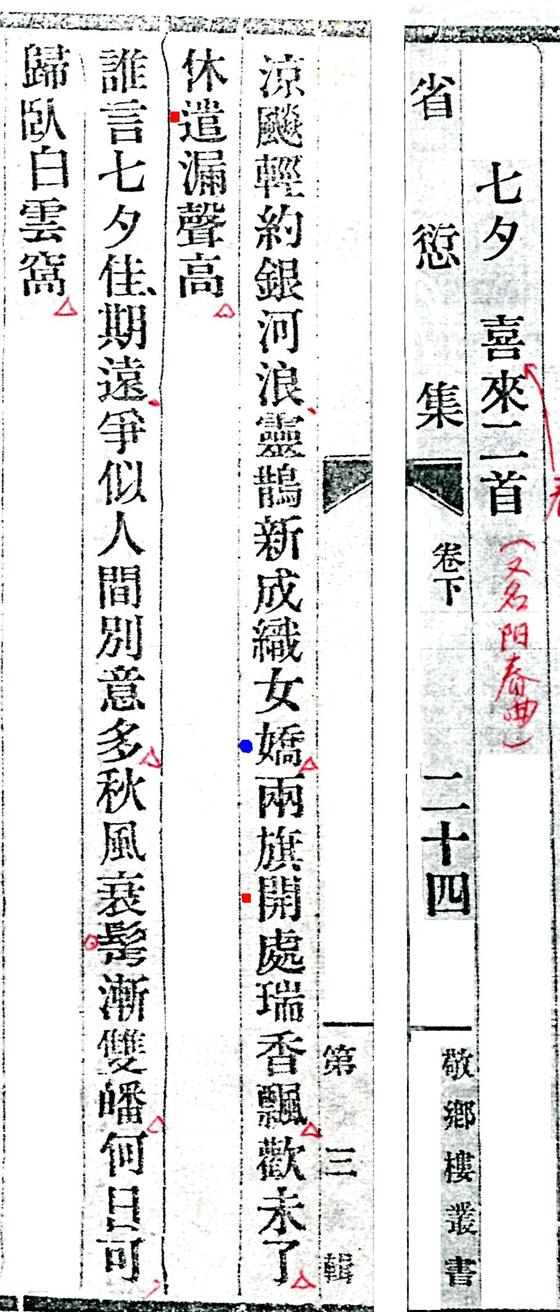 七夕　喜來二首
（又名阳春曲）
省愆集
卷下
二十四
敬鄉樓叢書
第三輯
涼颷輕約銀河浪靈鵲新成織女嬌兩旗開處瑞香飄歡未了
休遣漏聲高
誰言七夕佳期遠爭似人間別意多秋風衰髩漸雙皤何日可
歸臥白雲窩